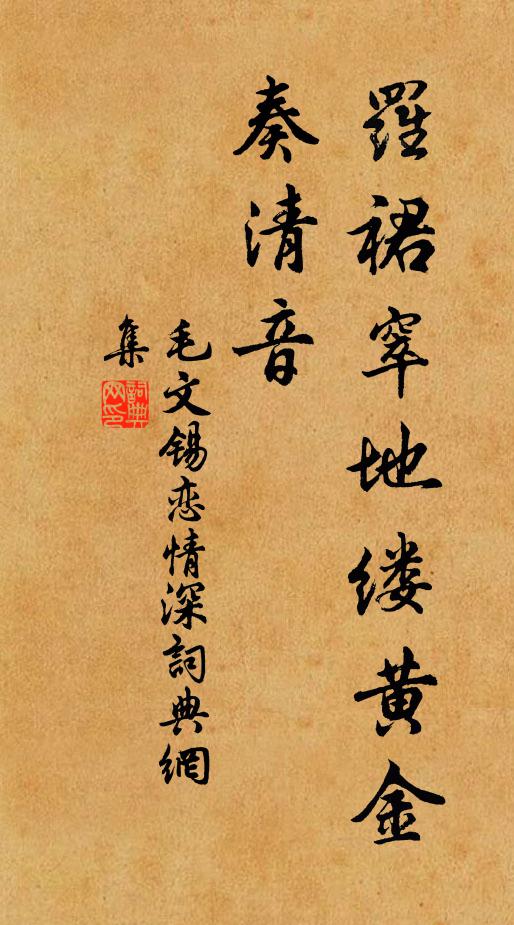 羅裙窣地缕黄金
奏清音
毛文锡恋情深詞典網
集
詞典
网印